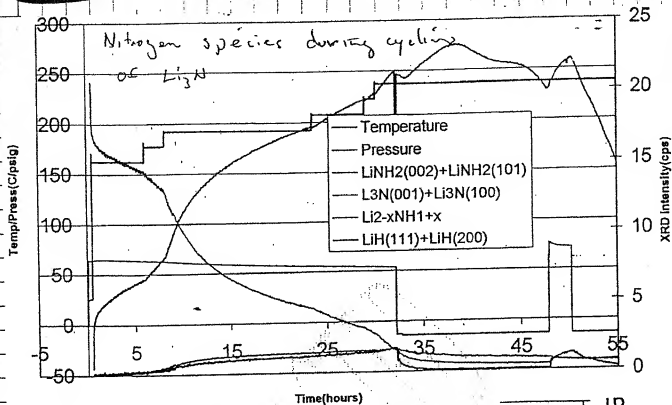 Nitrogen species during cycling
of Li3N
Temp/Press(C/psig)
300
250
200
150
100
50
0
-50
25
20
15
10
5
0
XRD Intensity(cps)
Temperature
Pressure
LiNH2(002)+LiNH2(101)
L3N(001)+Li3N(100)
Li2-xNH1+x
LiH(111)+LiH(200)
-5
5
15
25
35
45
55
Time(hours)